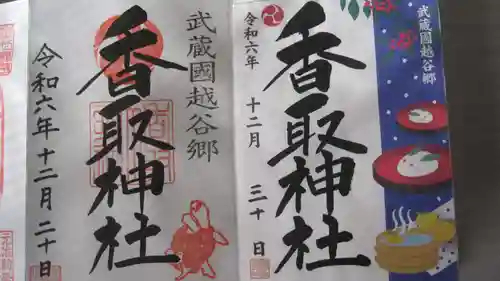 武蔵國越谷郷
香取神社
令和六年十二月三十日
武蔵國越谷郷
香取神社
令和六年十二月二十日